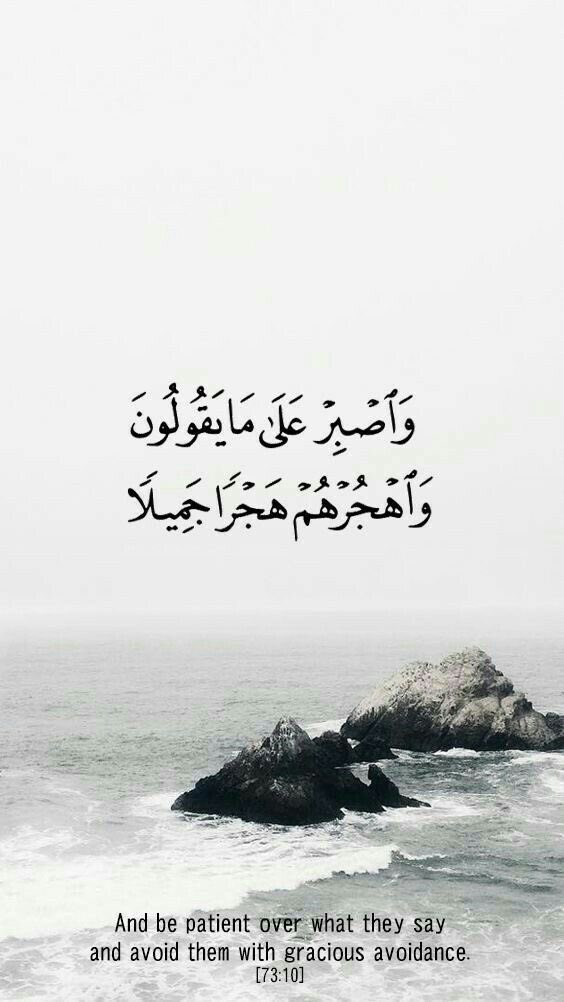 وَٱصۡبِرۡ عَلَىٰ مَا يَقُولُونَ
وَٱهۡجُرۡهُمۡ هَجۡرٗا جَمِيلٗا
And be patient over what they say
and avoid them with gracious avoidance.
[73:10]